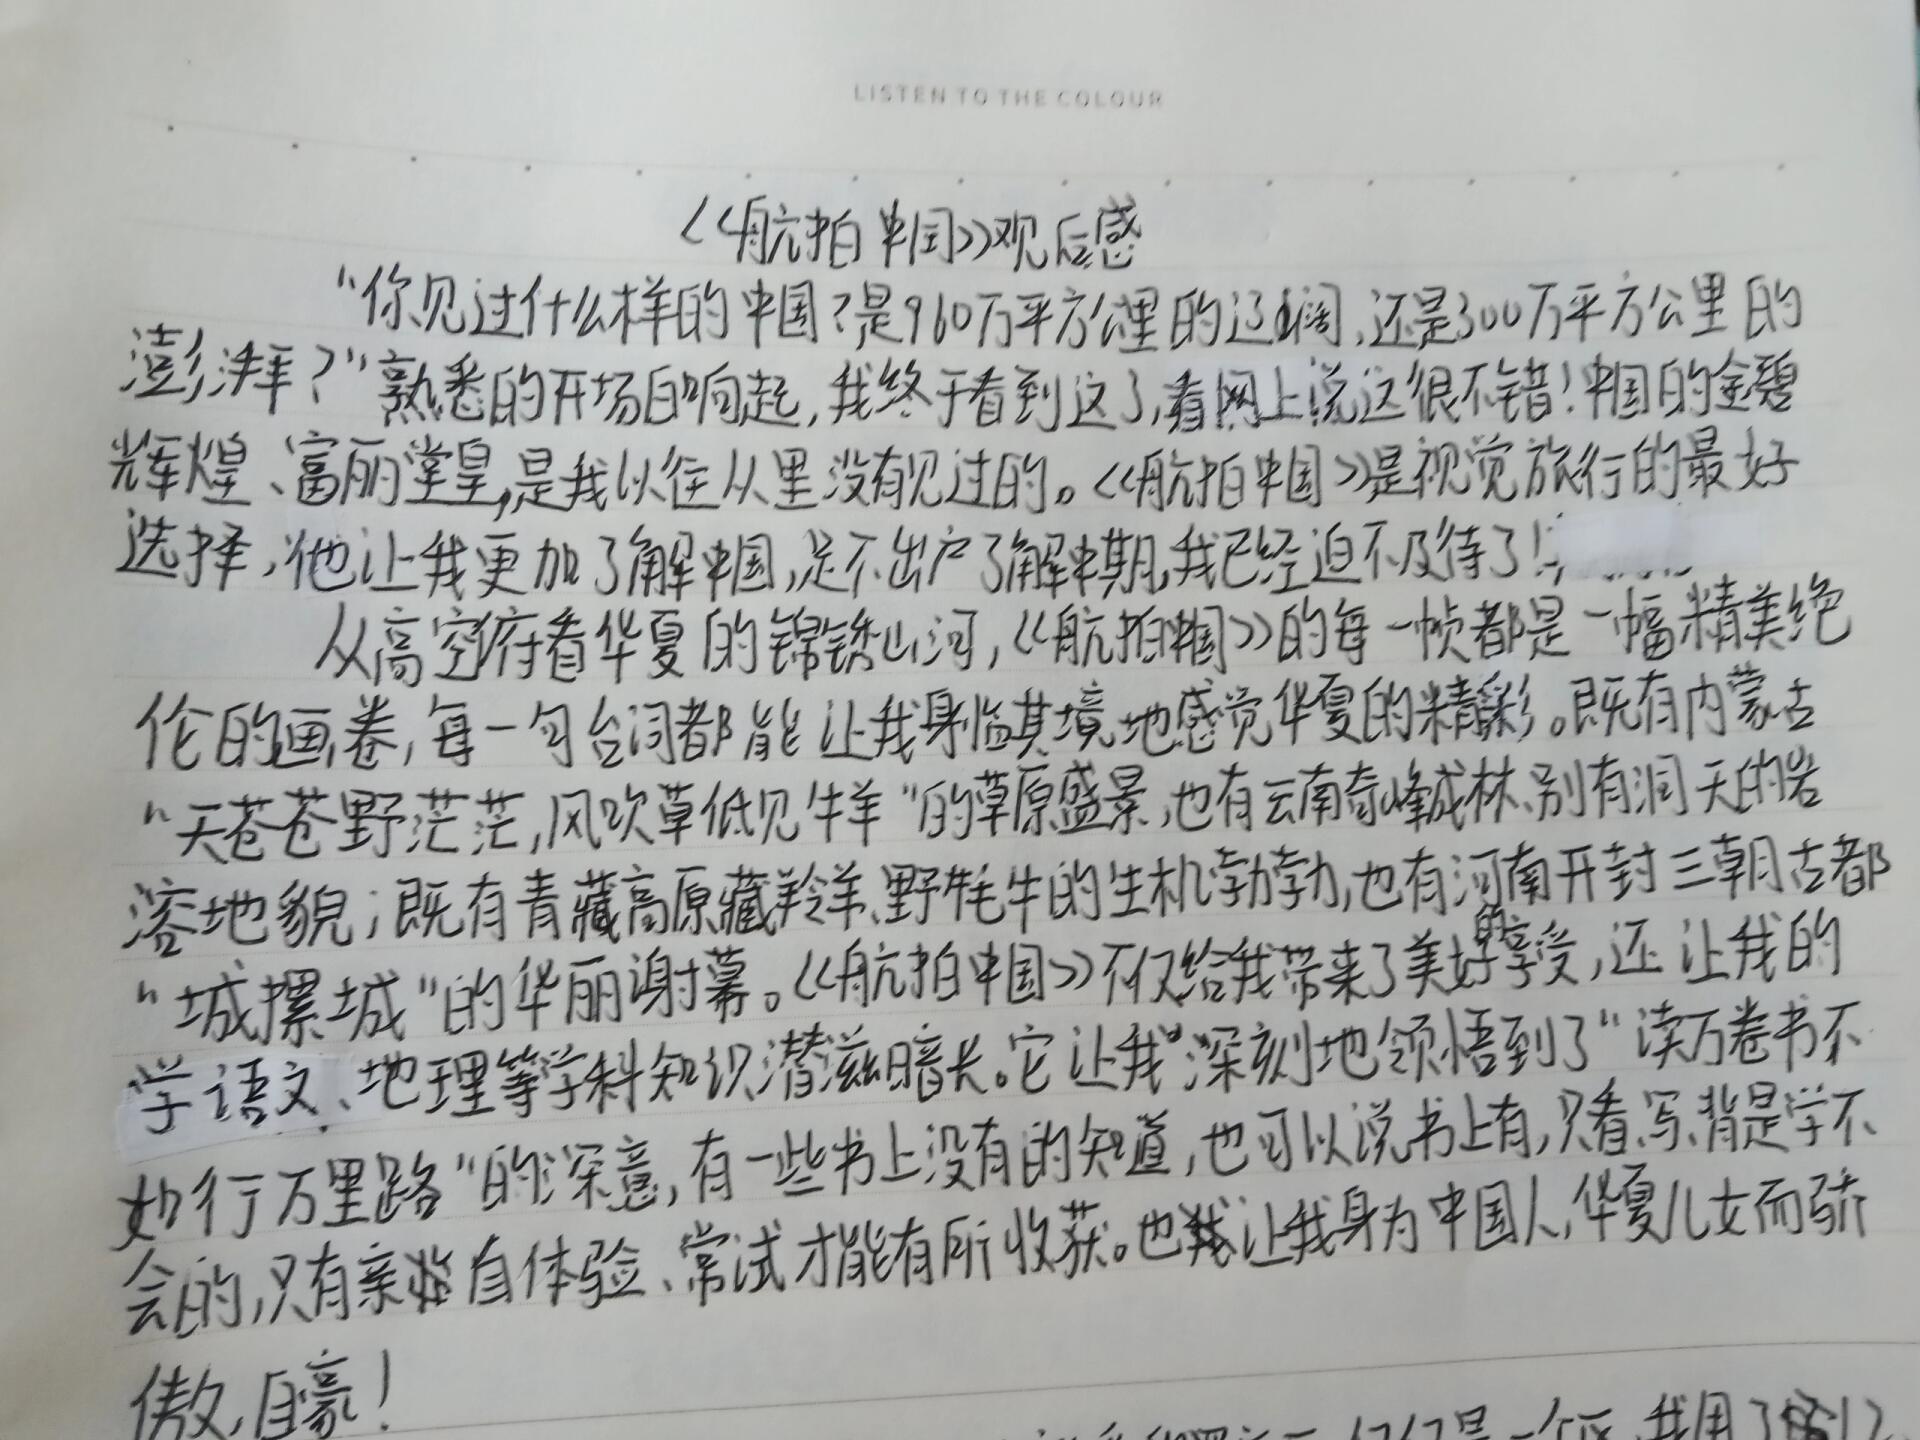 LISTEN TO THE COLOUR
《航拍中国》观后感
“你见过什么样的中国？是960万平方公里的辽阔，还是300万平方公里的
澎湃？”熟悉的开场白响起，我终于看到这了，看网上说这很不错！中国的金碧
辉煌、富丽堂皇，是我以往从里没有见过的。《航拍中国》是视觉旅行的最好
选择，他让我更加了解中国，足不出户了解中期，我已经迫不及待了！
从高空俯看华夏的锦锈山河，《航拍中国》的每一帧都是一幅精美绝
伦的画卷，每一句台词都能让我身临其境地感觉华夏的精彩。既有内蒙古
“天苍苍野茫茫，风吹草低见牛羊”的草原盛景，也有云南奇峰成林、别有洞天的岩
溶地貌；既有青藏高原藏羚羊、野牦牛的生机勃勃，也有河南开封三朝古都
“城摞城”的华丽谢幕。《航拍中国》不仅给我带来了美好的享受，还让我的
学语文、地理等学科知识潜滋暗长。它让我深刻地领悟到了“读万卷书不
如行万里路”的深意，有一些书上没有的知道，也可以说书上有，只看、写、背是学不
会的，只有亲自体验、常试才能有所收获。也让我身为中国人，华夏儿女而骄
傲、自豪！